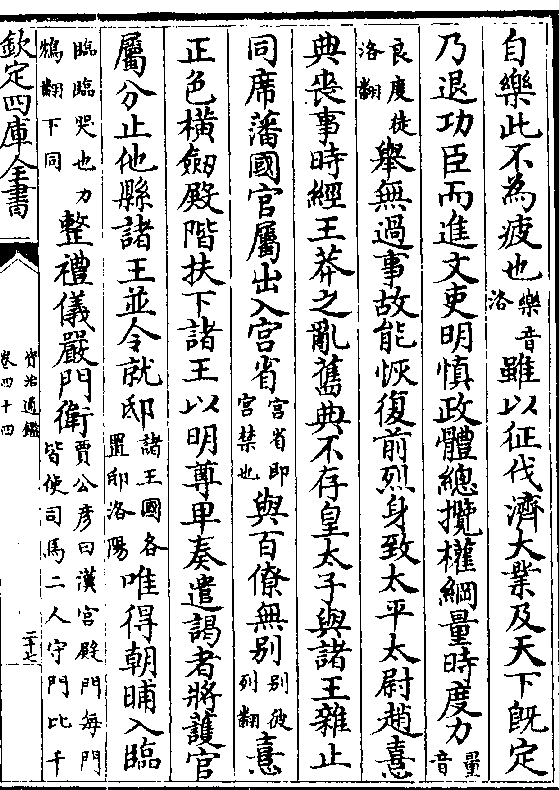 自樂此不為疲也樂音洛雖以征伐濟大業及天下既定
乃退功臣而進文吏明慎政體總攬權綱量時度力量音
良度徒洛翻舉無過事故能恢復前烈身致太平太尉趙憙
典喪事時經王莽之亂舊典不存皇太子與諸王雜止
同席藩國官屬出入宫省宫省即宫禁也與百僚無别别彼列翻憙
正色橫劒殿階扶下諸王以明尊卑奏遣謁者將護官
屬分止他縣諸王並令就邸諸王國各置邸洛陽唯得朝晡入臨
臨臨哭也力鴆翻下同整禮儀嚴門衛賈公彦曰漢宫殿門每門皆使司馬二人守門比千
欽定四庫全書
資治通鑑
卷四十四
二十七